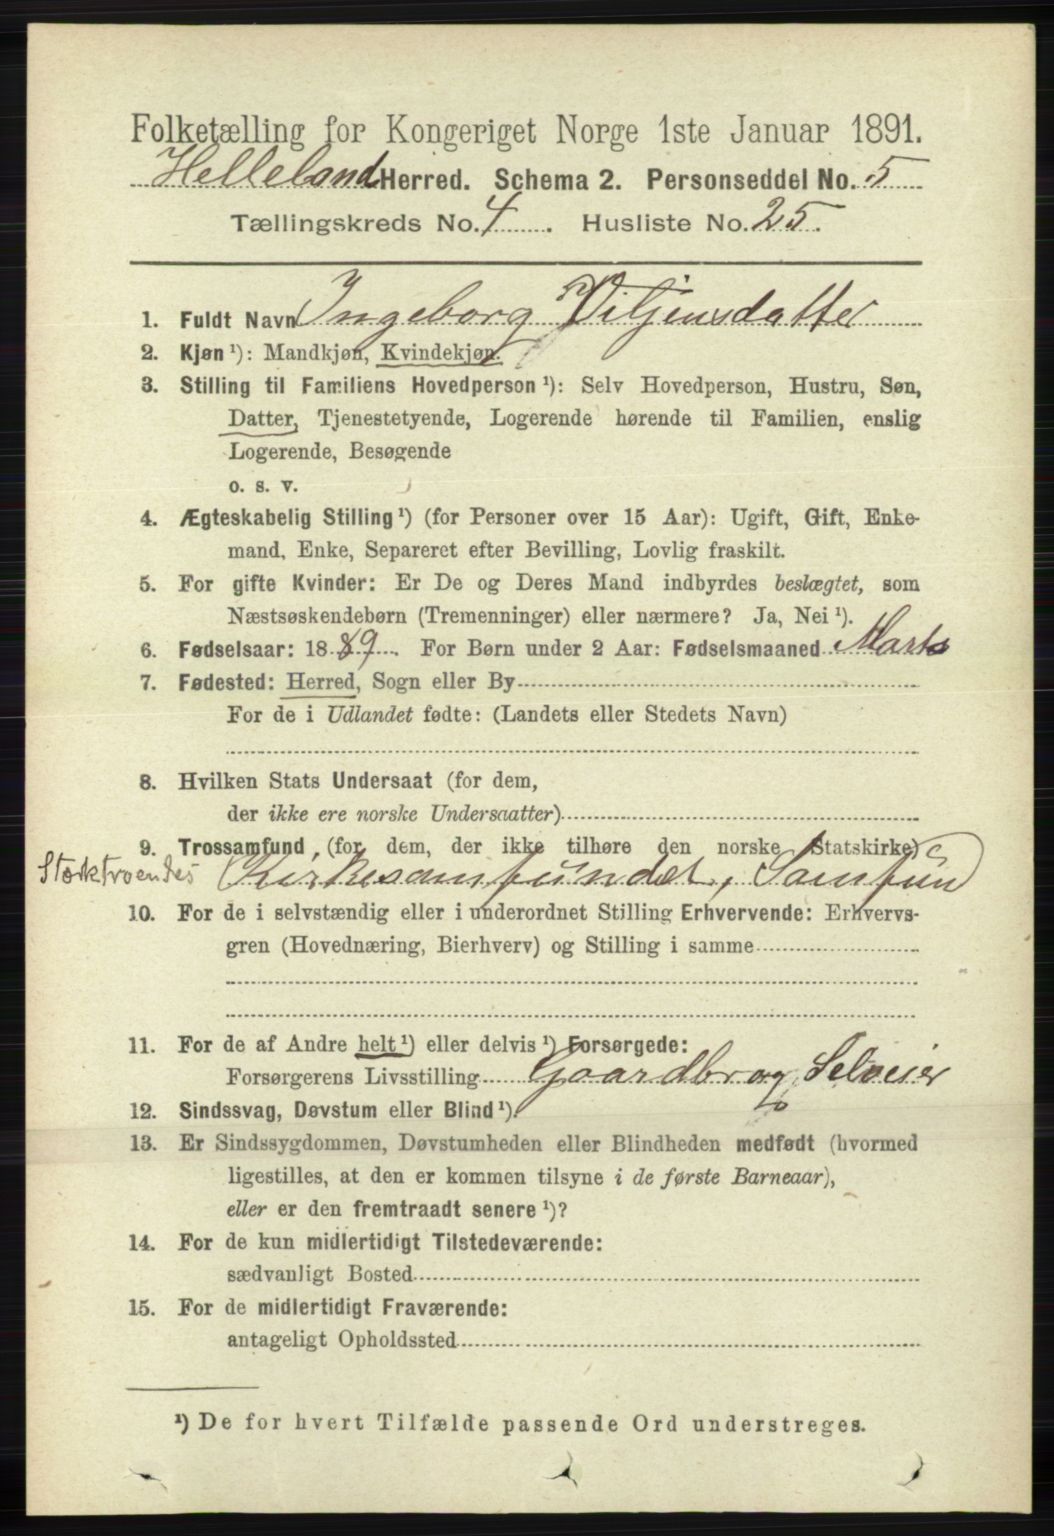 Folketælling for Kongeriget Norge 1ste Januar 1891.
Helleland Herred. Schema 2. Personseddel No. 5
Tællingskreds No. 4. Husliste No. 25.
1. Fuldt Navn Ingeborg Viljensdatter
2. Kjøn ¹): Mandkjøn, Kvindekjøn.
3. Stilling til Familiens Hovedperson ¹): Selv Hovedperson, Hustru, Søn,
Datter, Tjenestetyende, Logerende hørende til Familien, enslig
Logerende, Besøgende
o. s. v.
4. Ægteskabelig Stilling ¹) (for Personer over 15 Aar): Ugift, Gift, Enke-
mand, Enke, Separeret efter Bevilling, Lovlig fraskilt.
5. For gifte Kvinder: Er De og Deres Mand indbyrdes beslægtet, som
Næstsøskendebørn (Tremenninger) eller nærmere? Ja, Nei ¹).
6. Fødselsaar: 1889. For Børn under 2 Aar: Fødselsmaaned Marts
7. Fødested: Herred, Sogn eller By
For de i Udlandet fødte: (Landets eller Stedets Navn)
8. Hvilken Stats Undersaat (for dem,
der ikke ere norske Undersaatter)
9. Trossamfund, (for dem, der ikke tilhøre den norske Statskirke)
Stærktroendes Kirkesamfundet, Samfund
10. For de i selvstændig eller i underordnet Stilling Erhvervende: Erhvervs-
gren (Hovednæring, Bierhverv) og Stilling i samme
11. For de af Andre helt ¹) eller delvis ¹) Forsørgede:
Forsørgerens Livsstilling Gaardbrug, Selveier
12. Sindssvag, Døvstum eller Blind ¹).
13. Er Sindssygdommen, Døvstumheden eller Blindheden medfødt (hvormed
ligestilles, at den er kommen tilsyne i de første Barneaar),
eller er den fremtraadt senere ¹)?
14. For de kun midlertidigt Tilstedeværende:
sædvanligt Bosted
15. For de midlertidigt Fraværende:
antageligt Opholdssted
¹) De for hvert Tilfælde passende Ord understreges.